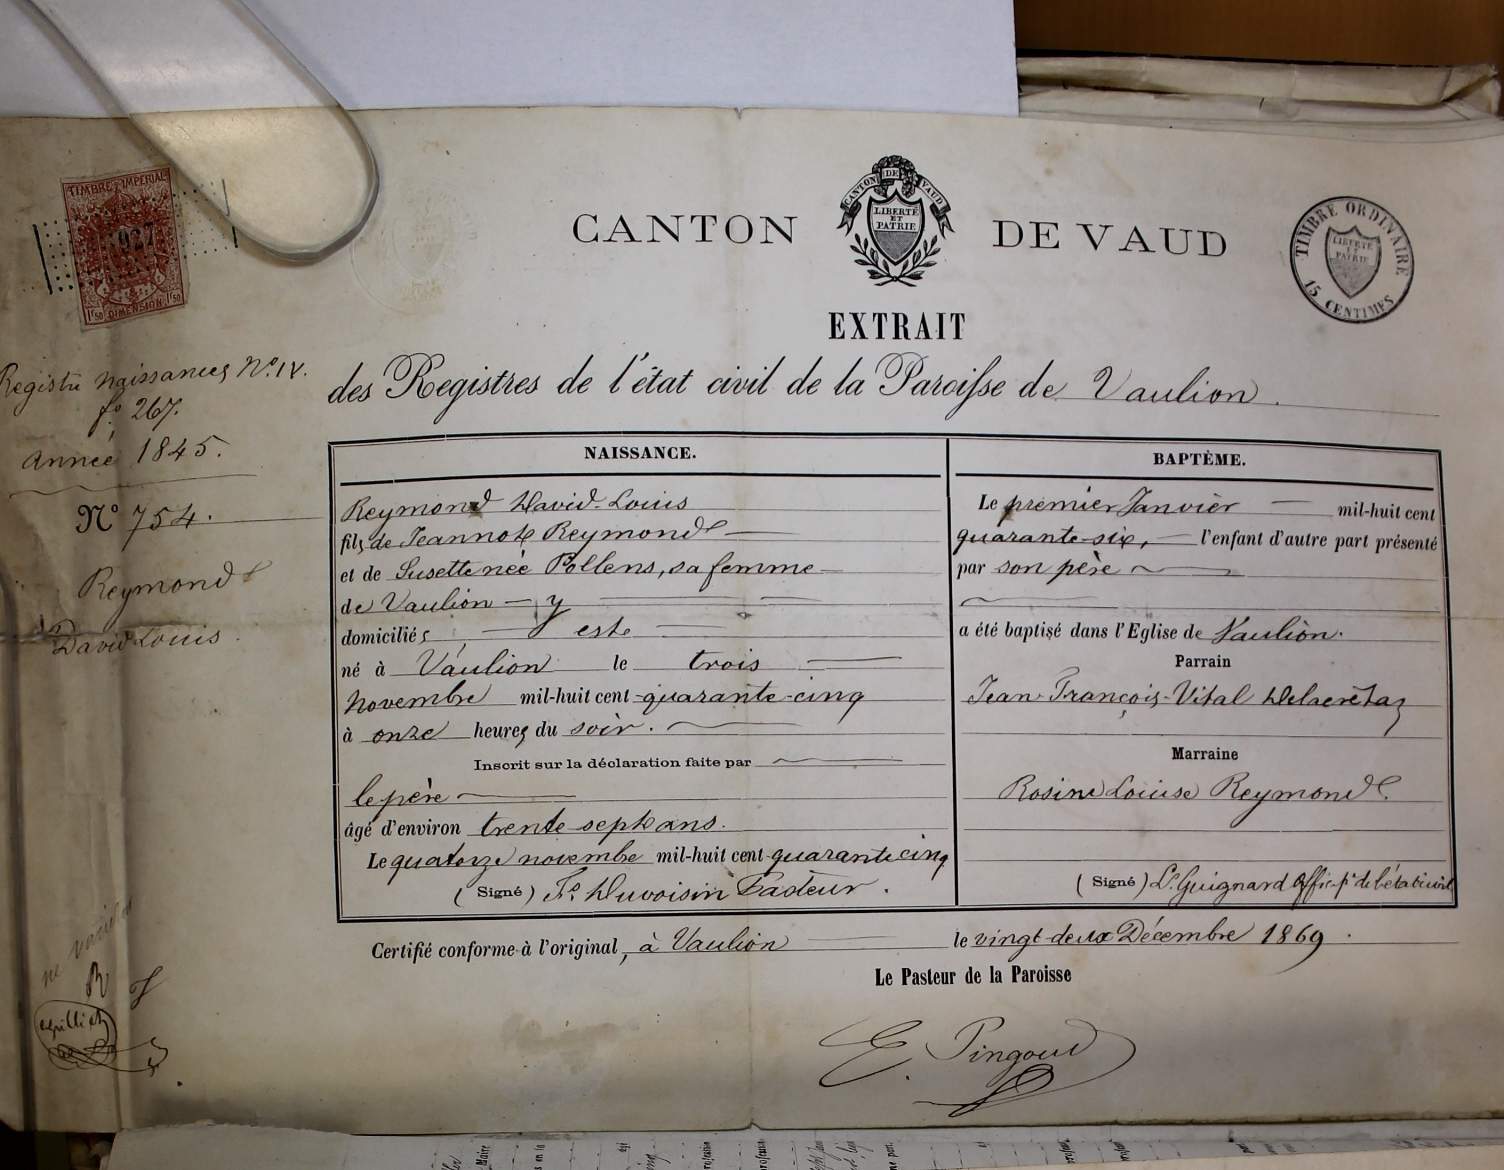 TIMBRE IMPERIAL
927
1f50 DIMENSION 1f50
CANTON DE VAUD
LIBERTÉ
ET
PATRIE
CANTON DE VAUD
TIMBRE ORDINAIRE
LIBERTÉ
ET
PATRIE
15 CENTIMES
EXTRAIT
des Registres de l'état civil de la Paroisse de Vaulion.
Registre naissances No. IV.
fo. 267.
Année 1845.
No 754.
Reymond
David Louis
NAISSANCE.
Reymond David-Louis
fils de Jeannot Reymond
et de Susette née Pollens, sa femme
de Vaulion - y
domiciliés
né à Vaulion le trois
novembre mil-huit cent quarante-cinq
à onze heures du soir.
Inscrit sur la déclaration faite par
le père
âgé d'environ trente-sept ans.
Le quatorze novembre mil-huit cent quarante cinq
(Signé) Fs. Duvoisin Pasteur.
BAPTÊME.
Le premier Janvier mil-huit cent
quarante-six, l'enfant d'autre part présenté
par son père
a été baptisé dans l'Eglise de Vaulion.
Parrain
Jean-François-Vital Delacrétaz
Marraine
Rosine Louise Reymond.
(Signé) Ls. Guignard Offic. pr. de l'état civil
Certifié conforme à l'original, à Vaulion le vingt-deux Décembre 1869.
Le Pasteur de la Paroisse
E. Pingoud
ne varietur